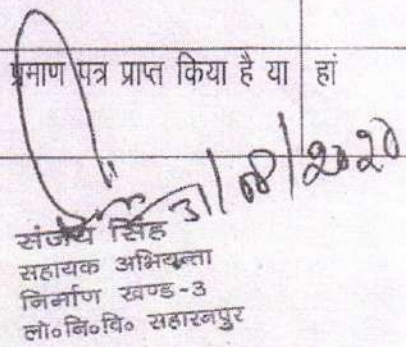 प्रमाण पत्र प्राप्त किया है या हां
31/08/2020
संजय सिंह
सहायक अभियन्ता
निर्माण खण्ड-3
लो०नि०वि० सहारनपुर